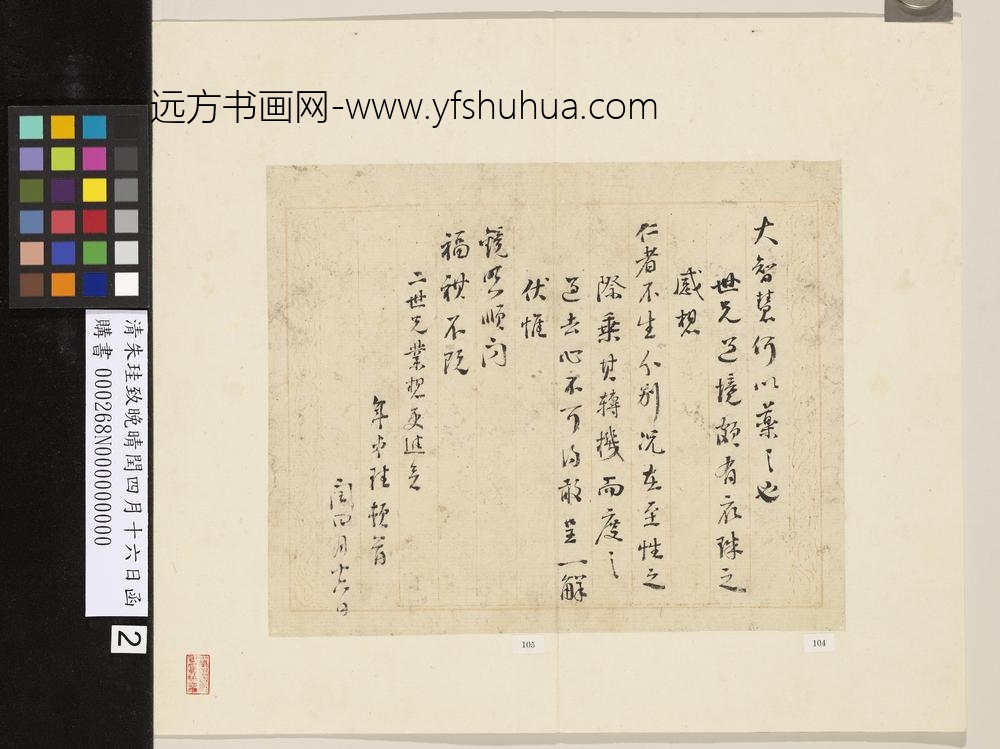 远方书画网-www.yfshuhua.com
大智慧何以藥之也
世兄之境頗有衣珠之
感想
仁者不生分別況在至性之
際乘其轉機而度之
過去心不可得敢呈一解
伏惟
鏡照順問
福祺不既
二世兄業想更進矣
年弟珪頓首
閏四月十六日
清朱珪致晚晴閏四月十六日函
購書 000268N000000000
2
105
104